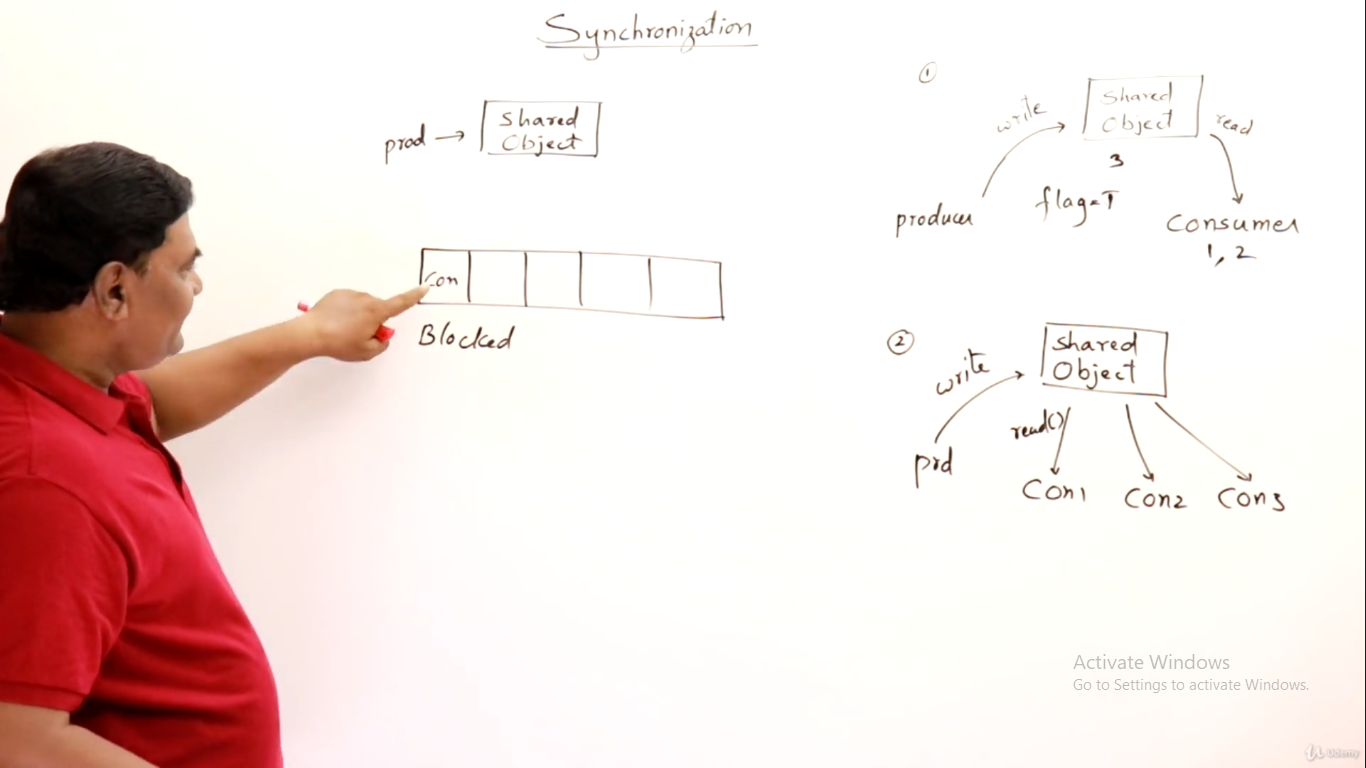 Synchronization
prod → Shared
Object
Con
Blocked
①
write
Shared
Object
read
3
flag=T
producer
Consumer
1, 2
②
write
Shared
Object
read()
prd
Con1 Con2 Con3
Activate Windows
Go to Settings to activate Windows.
Udemy